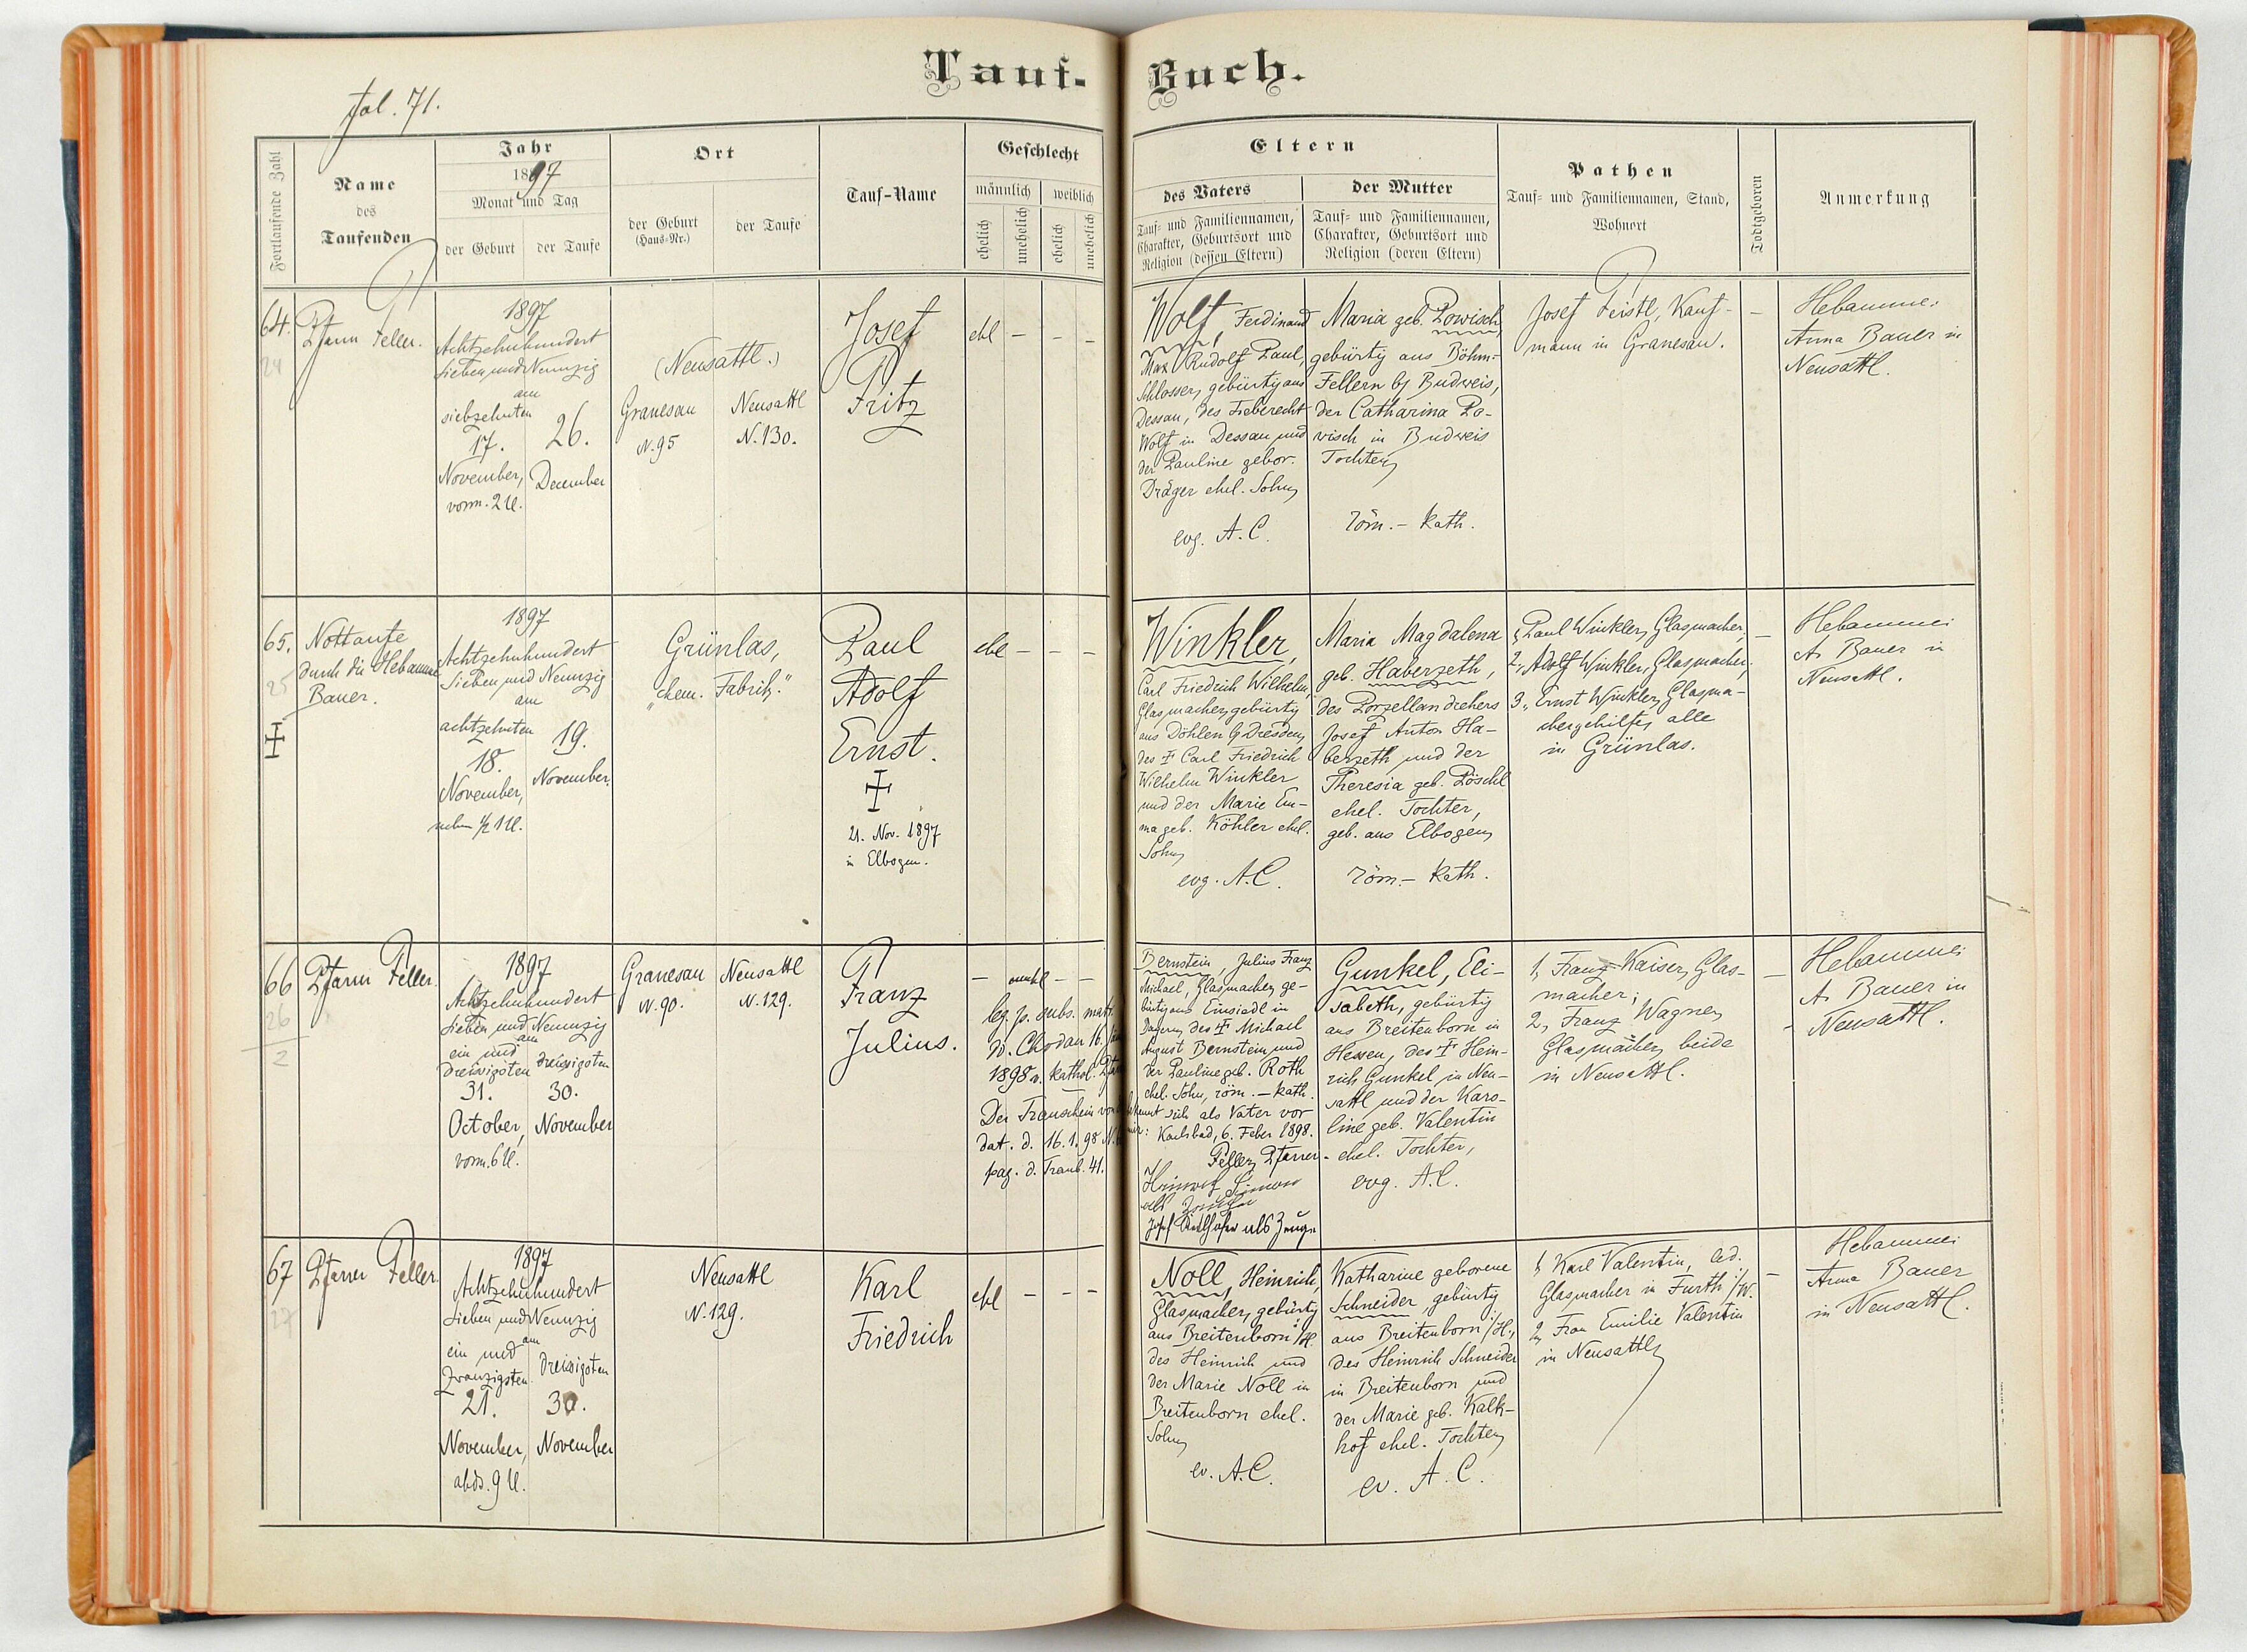 Tauf-Buch.
fol. 71.
Fortlaufende Zahl
Name
des
Taufenden
Jahr
1897
Monat und Tag
der Geburt
der Taufe
Ort
der Geburt
(Haus-Nr.)
der Taufe
Tauf-Name
Geschlecht
männlich
weiblich
ehelich
unehelich
ehelich
unehelich
Eltern
des Vaters
Tauf- und Familiennamen,
Charakter, Geburtsort und
Religion (dessen Eltern)
der Mutter
Tauf- und Familiennamen,
Charakter, Geburtsort und
Religion (deren Eltern)
Pathen
Tauf- und Familiennamen, Stand,
Wohnort
Todtgeboren
Anmerkung
64.
24
Pfarrer Feller.
1897
Achtzehnhundert
sieben und Neunzig
am
siebzehnten
17.
November,
vorm. 2 U.
26.
December
(Neusattl.)
Granesau
N. 95
Neusattl
N. 130.
Josef
Fritz
ehl - - -
Wolf, Ferdinand
Max Rudolf Paul,
Schlosser, gebürtig aus
Dessau, des Leberecht
Wolf in Dessau und
der Pauline gebor.
Dräger ehel. Sohn,
evg. A. C.
Maria geb. Powisch,
gebürtig aus Böhm-
Fellern b/ Budweis,
der Catharina Po-
visch in Budweis
Tochter,
röm.- kath.
Josef Peistl, Kauf-
mann in Granesau.
-
Hebamme:
Anna Bauer in
Neusattl.
65.
25
Nottaufe
durch die Hebamme
Bauer.
1897
Achtzehnhundert
sieben und Neunzig
am
achtzehnten
18.
November,
1/2 1 U.
19.
November.
Grünlas,
"chem. Fabrik."
Paul
Adolf
Ernst.
21. Nov. 1897
in Elbogen.
ehe - - -
Winkler,
Carl Friedrich Wilhelm,
Glasmacher, gebürtig
aus Döhlen b/Dresden,
des † Carl Friedrich
Wilhelm Winkler
und der Marie Em-
ma geb. Köhler ehel.
Sohn,
evg. A. C.
Maria Magdalena
geb. Haberzeth,
des Porzellandrehers
Josef Anton Ha-
berzeth und der
Theresia geb. Pöschl
ehel. Tochter,
geb. aus Elbogen,
röm.- kath.
1, Paul Winkler, Glasmacher,
2, Adolf Winkler, Glasmacher,
3, Ernst Winkler, Glasma-
chergehilfe, alle
in Grünlas.
-
Hebamme:
A. Bauer in
Neusattl.
66
26
2
Pfarrer Feller.
1897
Achtzehnhundert
sieben und Neunzig
am
ein und
dreissigsten
31.
October,
vorm. 6 U.
dreissigsten
30.
November
Granesau
N. 90.
Neusattl
N. 129.
Franz
Julius.
- unehl - -
leg. p. subs. matr.
d. Chodau 16.
1898 v. kathol.
Der Trauschein
dat. d. 16. 1. 98
pag. d. Traub. 41.
Bernstein, Julius Franz
Michael, Glasmacher, ge-
bürtig aus Einsiedl in
Bayern, des † Michael
August Bernstein und
der Pauline geb. Roth
ehel. Sohn, röm.- kath.
bekennt sich als Vater vor
mir: Karlsbad, 6. Feber 1898.
Feller, Pfarrer
als Zeuge
Josef als Zeuge
Gunkel, Eli-
sabeth, gebürtig
aus Breitenborn in
Hessen, des † Hein-
rich Gunkel in Neu-
sattl und der Karo-
line geb. Valentin
ehel. Tochter,
evg. A. C.
1, Franz Kaiser, Glas-
macher;
2, Franz Wagner,
Glasmacher, beide
in Neusattl.
-
Hebamme:
A. Bauer in
Neusattl.
67
27
Pfarrer Feller.
1897
Achtzehnhundert
sieben und Neunzig
am
ein und
zwanzigsten
21.
November,
abds. 9 U.
dreissigsten
30.
November
Neusattl
N. 129.
Karl
Friedrich
ehl - - -
Noll, Heinrich,
Glasmacher, gebürtig
aus Breitenborn i/H.
des Heinrich und
der Marie Noll in
Breitenborn ehel.
Sohn,
ev. A. C.
Katharine geborene
Schneider, gebürtig
aus Breitenborn i/H.,
des Heinrich Schneider
in Breitenborn und
der Marie geb. Kalk-
hof ehel. Tochter,
ev. A. C.
1, Karl Valentin, led.
Glasmacher in Furth i/W.
2, Frau Emilie Valentin
in Neusattl,
-
Hebamme:
Anna Bauer
in Neusattl.